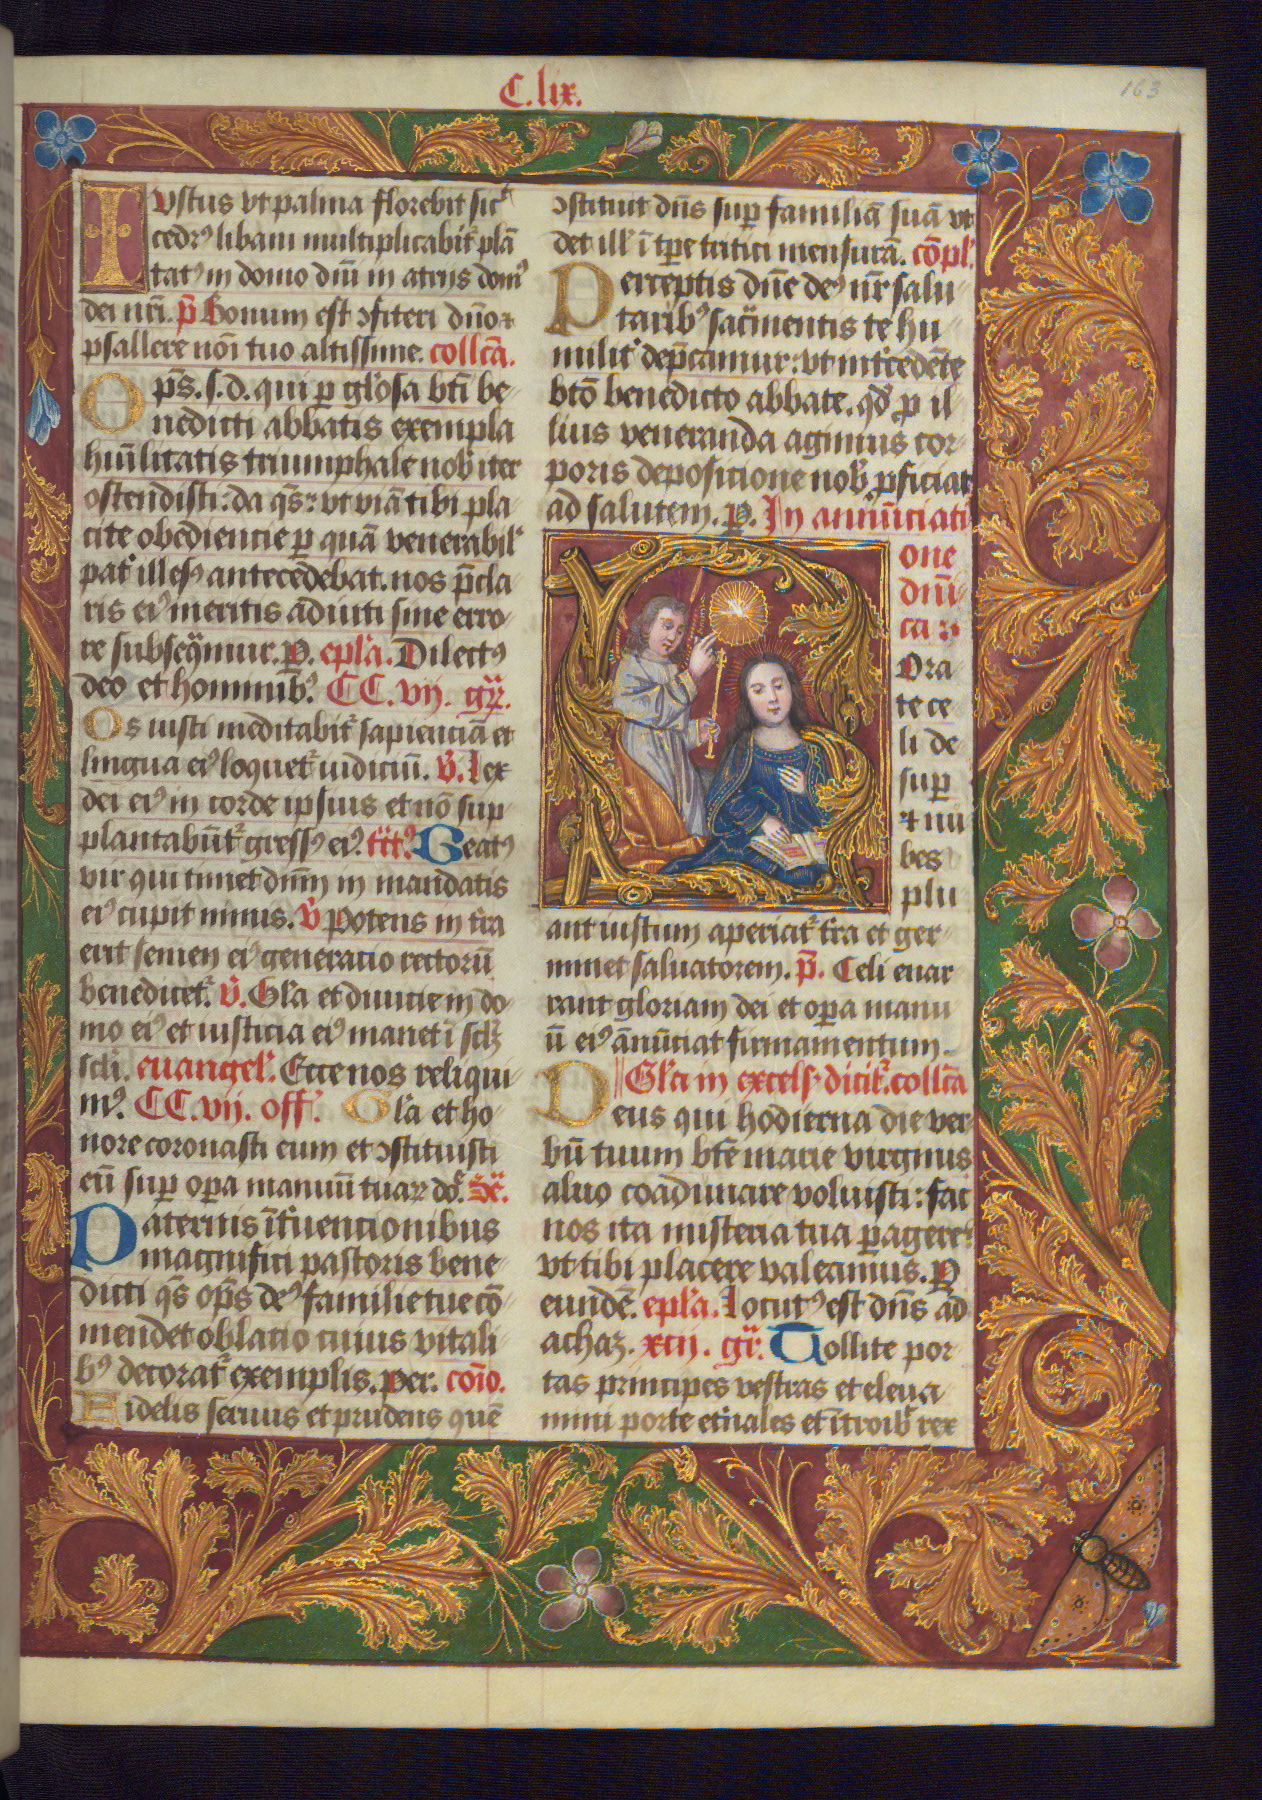 C. lix.
163
Iustus vt palma florebit sic̄
cedrꝰ libani multiplicabit᷑ plā
tatꝰ in domo dn̄i in atriis domꝰ
dei nr̄i. p̄ Bonum est ꝯfiteri dn̄o ⁊
psallere noī tuo altissime. collc̄a.
Op̄s. s. d. qui ꝑ gl̓osa bt̄i be-
nedicti abbatis exempla
hūilitatis triumphale nob̓ iter
ostendisti: da qs̄: vt viā tibi pla-
cite obediencie ꝑ quā venerabil̓
pat̓ illesꝰ antecedebat. nos p̄cla
ris eiꝰ meritis adiuti sine erro-
re subseq̄mur. P. epl̓a. Dilectꝰ
deo et hominibꝰ. CC. vij. gr̄.
Os iusti meditabit᷑ sapienciā et
lingua eiꝰ loquet᷑ iudiciū. v̄. Lex
dei eiꝰ in corde ipsius et nō sup
plantabūt᷑ gressꝰ eiꝰ. tr̄ctꝰ. Beatꝰ
vir qui timet dn̄m in mandatis
eiꝰ cupit nimis. v̄. Potens in tr̄a
erit semen eiꝰ generacio rectorū
benedicet᷑. v̄. Gl̓a et diuicie in do-
mo eiꝰ et iusticia eiꝰ manet ī sclꝫ
scl̓i. euangel̓. Ecce nos reliqui
mꝰ. CC. vij. off̓. Gl̓a et ho
nore coronasti eum et ꝯstituisti
eū suꝑ oꝑa manuū tuaꝝ dō.
Paternis īt̓uencionibus
magnifici pastoris bene-
dicti qs̄ op̄s deꝰ familie tue cō-
mendet oblatio cuius vitali-
bꝰ decorat᷑ exemplis. per. cōio.
Fidelis seruus et prudens quē
ꝯstituit dn̄s suꝑ familiā suā vt
det ill̓ ī tꝑe tritici mensurā. cōpl̓.
Perceptis dn̄e deꝰ nr̄ salu-
taribꝰ sac̄mentis te hu-
milit̓ dep̄camur: vt int̓cedēte
btō benedicto abbate. qd̓ ꝓ il-
lius veneranda agimus cor-
poris deposicione nob̓ ꝓficiat
ad salutem. P. In annūciati
one
dn̄i
ca ꝛ
Ora
te ce
li de-
suꝑ
⁊ nu
bes
plu
ant iustum aperiat᷑ tr̄a et ger-
minet saluatorem. p̄. Celi enar
rant gloriam dei et oꝑa manu
ū eiꝰ ānūciat firmamentum.
Gl̓ci in excels̓ dicit᷑. collc̄a
Deus qui hodierna die ver-
bū tuum bt̄e marie virginis
aluo coadunare voluisti: fac
nos ita misteria tua ꝑagere:
vt tibi placere valeamus. P
eundē. epl̓a. Locutꝰ est dn̄s ad
achaz. xciij. gr̄. Tollite por-
tas principes vestras et eleua
mini porte et̓nales et ītroib̓ rex